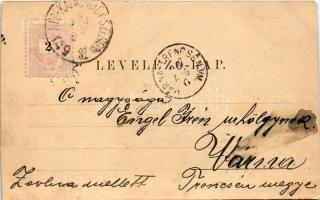 2
LEVELEZŐ-LAP.
Ő nagysága
Engel Irén urhölgynek
Várna
Zsolna mellett
Trencsén megye